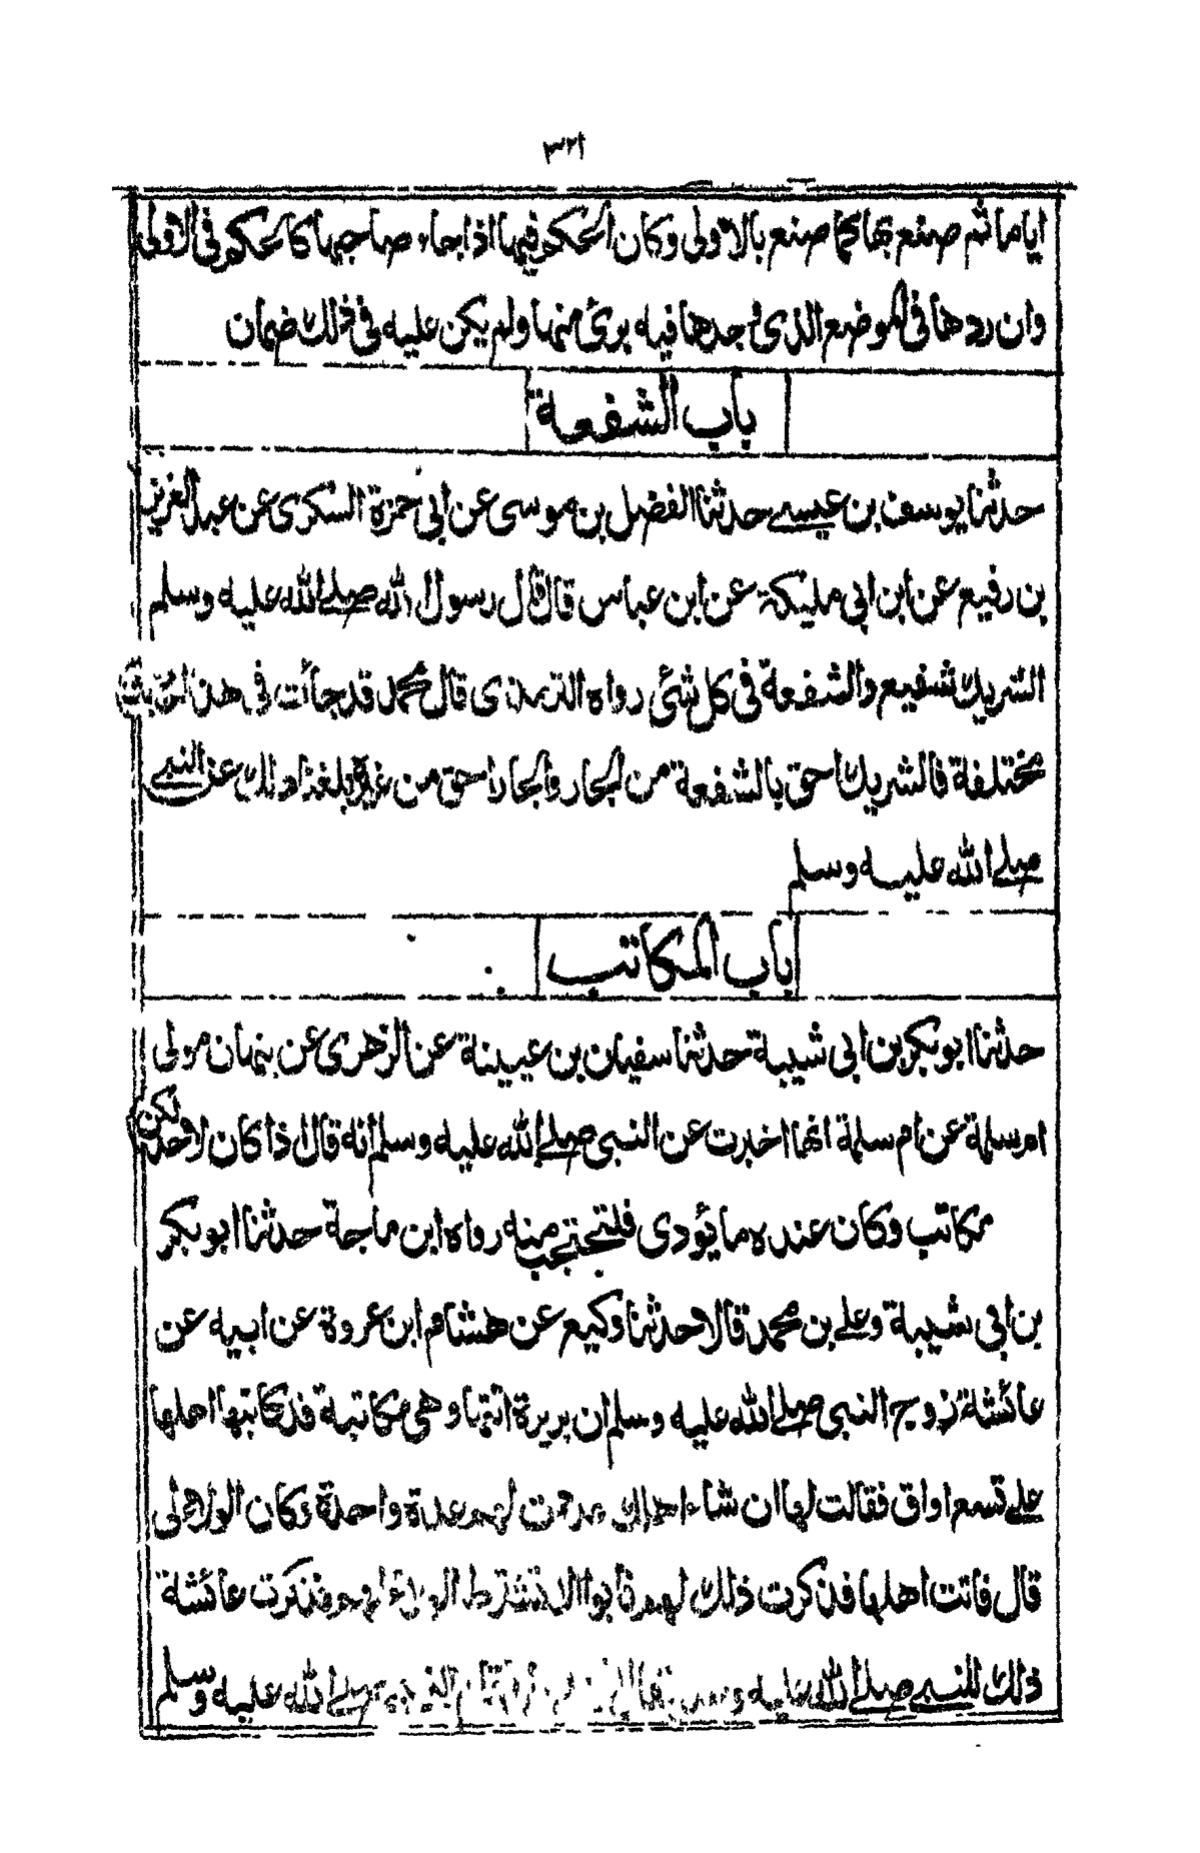 ٣٢١
اياما ثم صنع بها كما صنع بالاولى وكان الحكم فيها اذا جاء صاحبها كالحكم في الاولى
وان ردها في الموضع الذى وجدها فيه برئ منها ولم يكن عليه فى ذلك ضمان
باب الشفعة
حدثنا يوسف بن عيسے حدثنا الفضل بن موسى عن ابي حمزة السكرى عن عبد العزيز
بن رفيع عن ابن ابي مليكة عن ابن عباس قال قال رسول الله صلے الله عليه وسلم
الشريك شفيع والشفعة في كل شئ رواه الترمذى قال محمد قد جاأت فى هذا احاديث
مختلفة فالشريك احق بالشفعة من الجار والجار احق من غيره بلغنا ذلك عن النبے
صلے الله عليه وسلم
باب المكاتب
حدثنا ابو بكر بن ابي شيبة حدثنا سفيان بن عيينة عن الزهرى عن نبهان مولى
ام سلمة عن ام سلمة انها اخبرت عن النبى صلے الله عليه وسلم انه قال اذا كان لاحدىكن
مكاتب وكان عنده ما يؤدى فلتحتجب منه رواه ابن ماجة حدثنا ابو بكر
بن ابي شيبة وعلے بن محمد قالا حدثنا وكيع عن هشام ابن عروة عن ابيه عن
عائشة زوج النبى صلے الله عليه وسلم ان بريرة اتتها وهى مكاتبة قد كاتبها اهلها
علے تسع اواق فقالت لها ان شاء اهلك عددت لهم عدة واحدة وكان الولاء لى
قال فاتت اهلها فذكرت ذلك لهم فابوا الا ان تشترط الولاء لهم فذكرت عائشة
ذلك للنبے صلے الله عليه وسلم فقال النبى صلے الله عليه وسلم